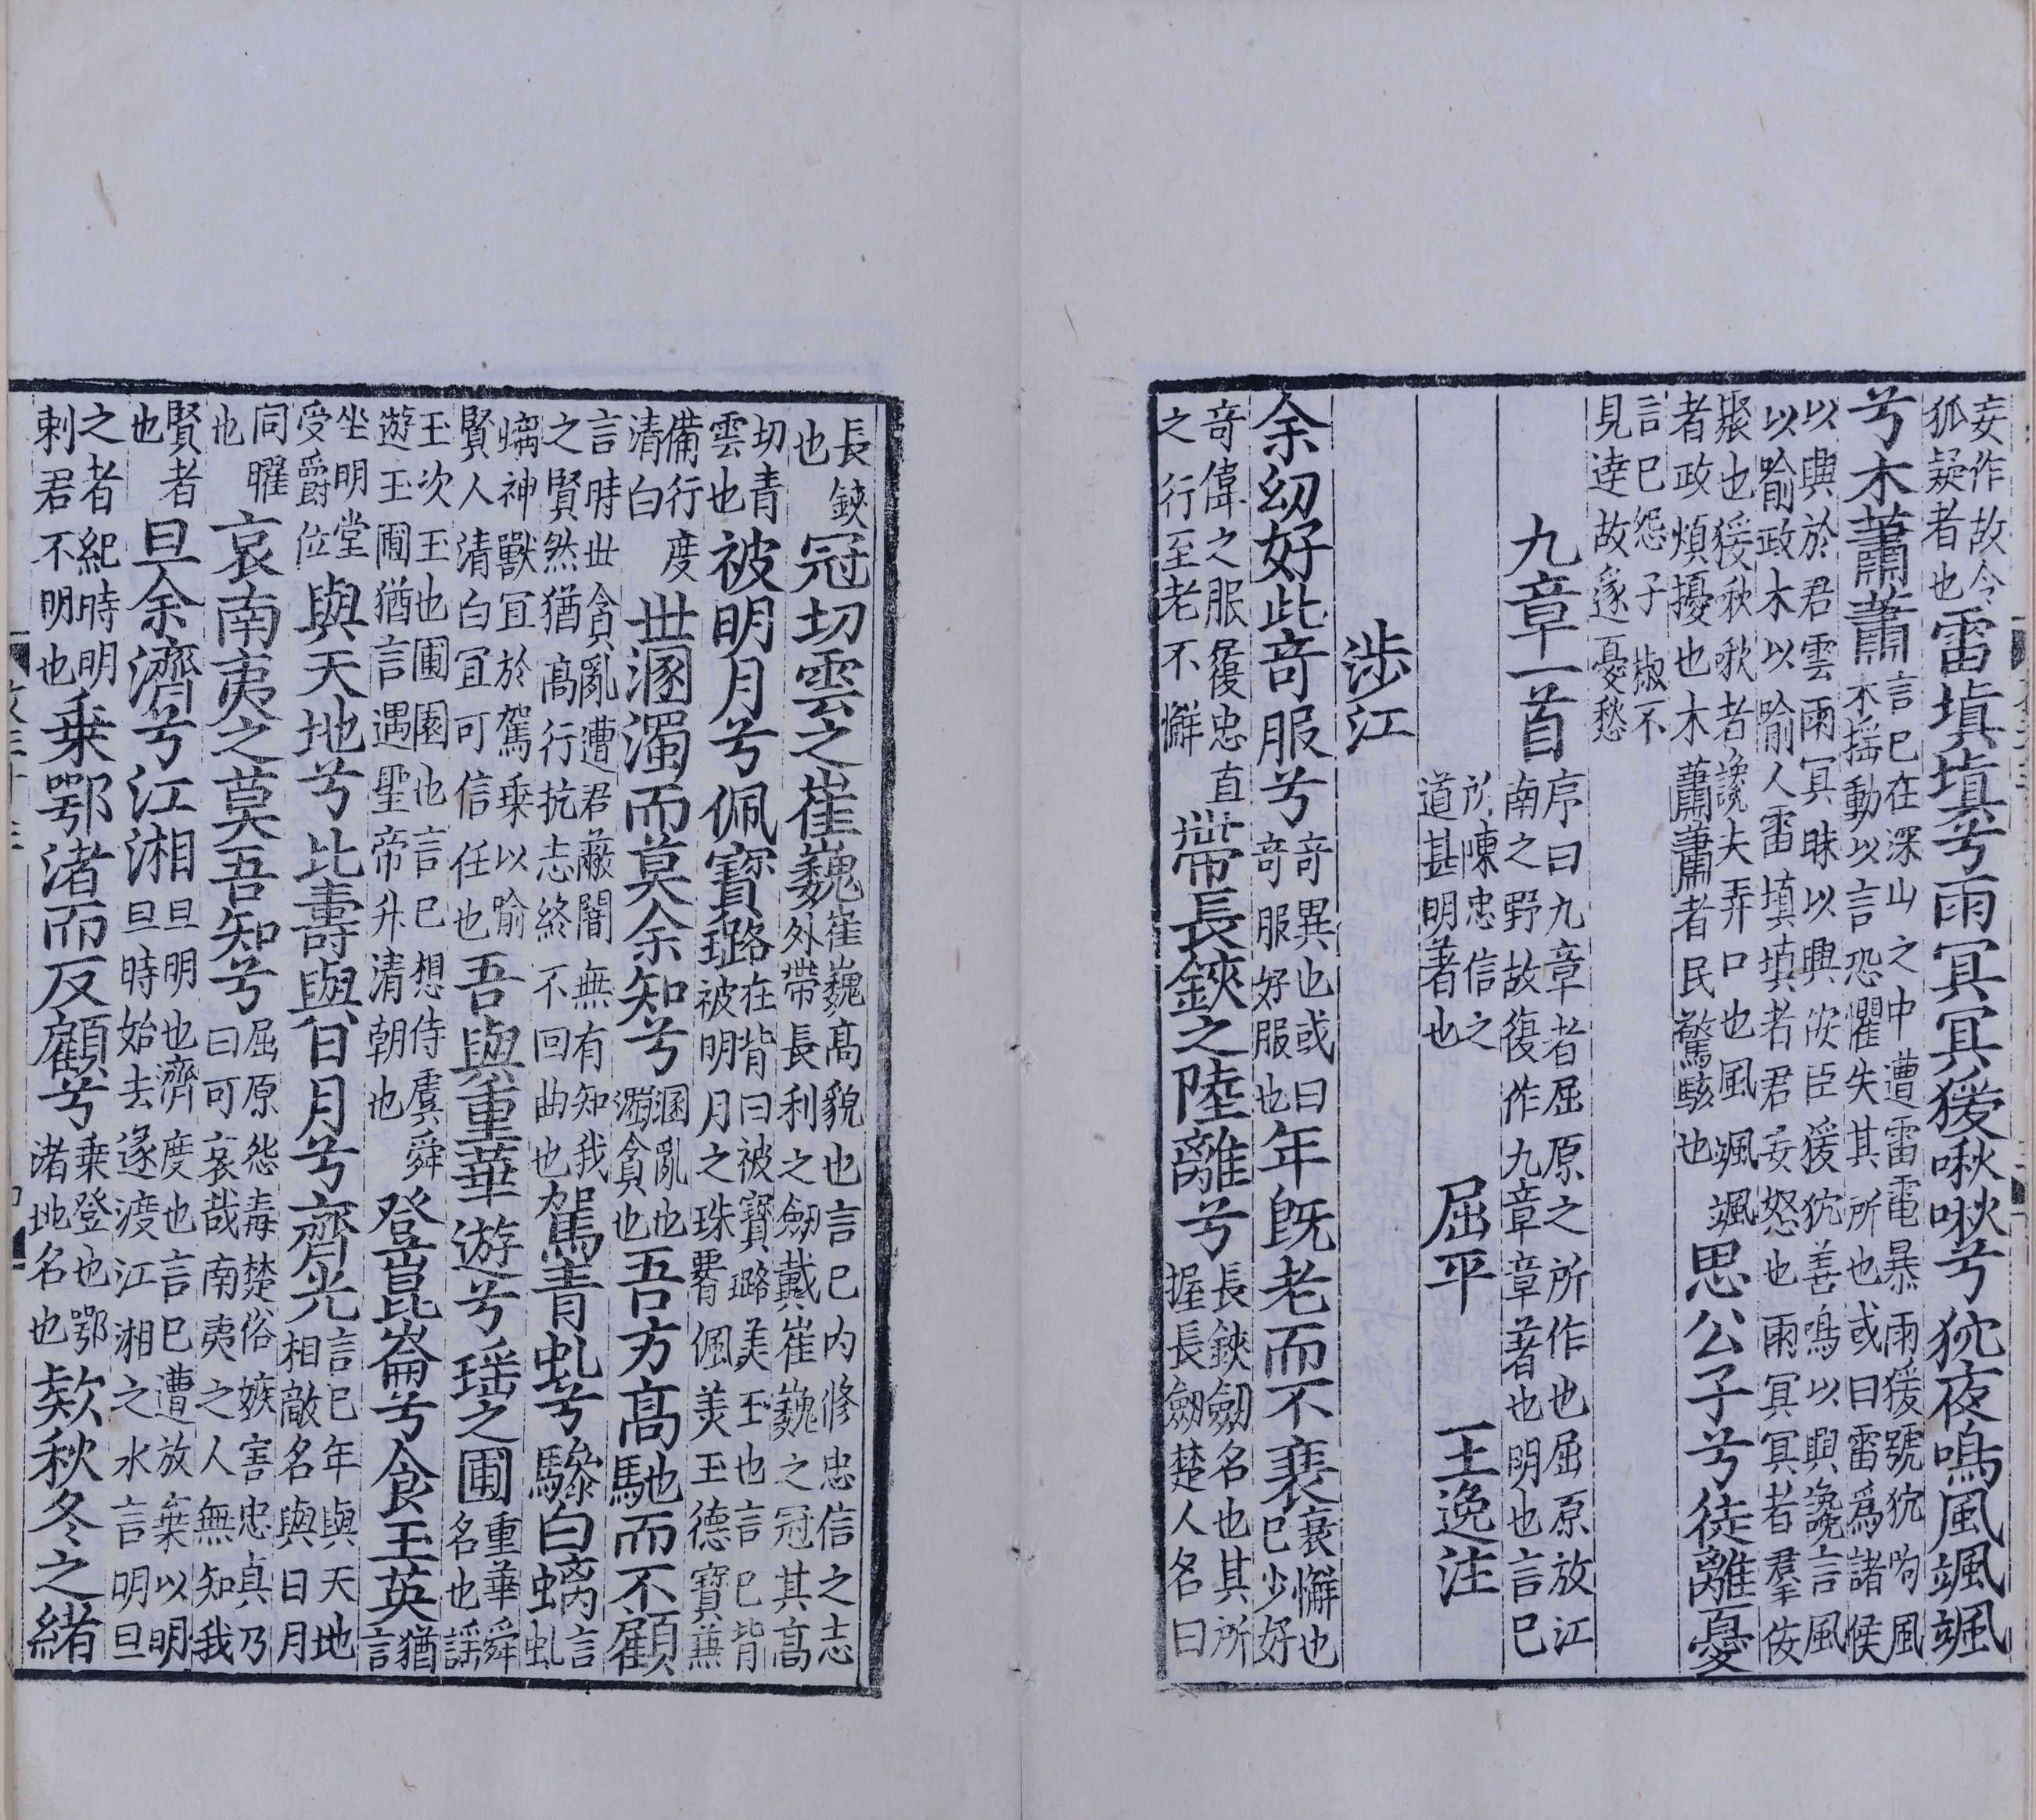 妄作故今
狐疑者也雷填填兮雨冥冥猨啾啾兮狖夜鳴風颯颯
兮木蕭蕭言已在深山之中遭雷電暴雨猨號狖呴風
木搖動以言恐懼失其所也或曰雷爲諸侯
以興於君雲雨冥昧以興佞臣猨狖善鳴以興讒言風
以喻政木以喻人雷填填者君妄怒也雨冥冥者羣佞
聚也猨啾啾者讒夫弄口也風颯颯
者政煩擾也木蕭蕭者民驚駭也思公子兮徒離憂
言已怨子椒不
見達故遂憂愁
九章一首序曰九章者屈原之所作也屈原放江
南之野故復作九章章著也明也言已
所陳忠信之
道甚明著也
屈平 王逸注
涉江
余幼好此奇服兮奇異也或曰
奇服好服也年旣老而不衰衰懈也
已少好
奇偉之服履忠直
之行至老不懈帶長鋏之陸離兮長鋏劒名也其所
握長劒楚人名曰
長鋏
也冠切雲之崔巍崔巍高貌也言已内修忠信之志
外帶長利之劒戴崔巍之冠其高
切青
雲也被明月兮佩寶璐在背曰被寶璐美玉也言已背
被明月之珠𦝫佩美玉德寶兼
備行度
清白世溷濁而莫余知兮溷亂也
濁貪也吾方高馳而不顧
言時世貪亂遭君蔽闇無有知我
之賢然猶高行抗志終不回曲也駕青虬兮驂白螭言
虬
螭神獸宜於駕乗以喻
賢人清白宜可信任也吾與重華遊兮瑶之圃重華舜
名也謡
玉次玉也圃園也言已想侍虞舜
遊玉圃猶言遇聖帝升清朝也登崑崙兮食玉英猶
言
坐明堂
受爵位與天地兮比壽與日月兮齊光言已年與天地
相敵名與日月
同曜
也哀南夷之莫吾知兮屈原怨毒楚俗嫉害忠真乃
曰可哀哉南夷之人無知我
賢者
也旦余濟兮江湘旦明也濟度也言已遭放棄以明
旦時始去遂渡江湘之水言明旦
之者紀時明
刺君不明也乗鄂渚而反顧兮乗登也鄂
渚地名也欸秋冬之緒